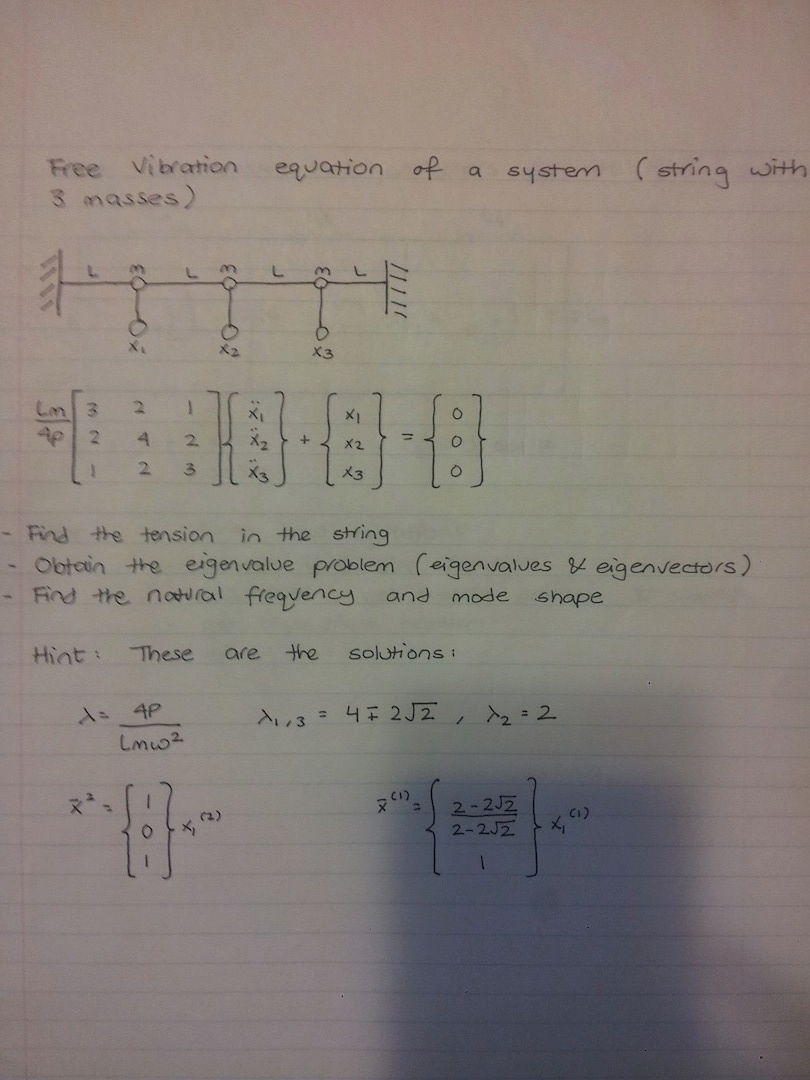 Free Vibration equation of a system (string with
3 masses)
L m L m L m L
x₁ x₂ x₃
Lm/4P [3 2 1; 2 4 2; 1 2 3] {ẍ₁; ẍ₂; ẍ₃} + {x₁; x₂; x₃} = {0; 0; 0}
- Find the tension in the string
- Obtain the eigenvalue problem (eigenvalues & eigenvectors)
- Find the natural frequency and mode shape
Hint: These are the solutions:
λ = 4P/Lmω² λ₁,₃ = 4 ∓ 2√2 , λ₂ = 2
x̄² = {1; 0; 1} x₁⁽²⁾ x̄⁽¹⁾ = {2-2√2/2-2√2; 1} x₁⁽¹⁾